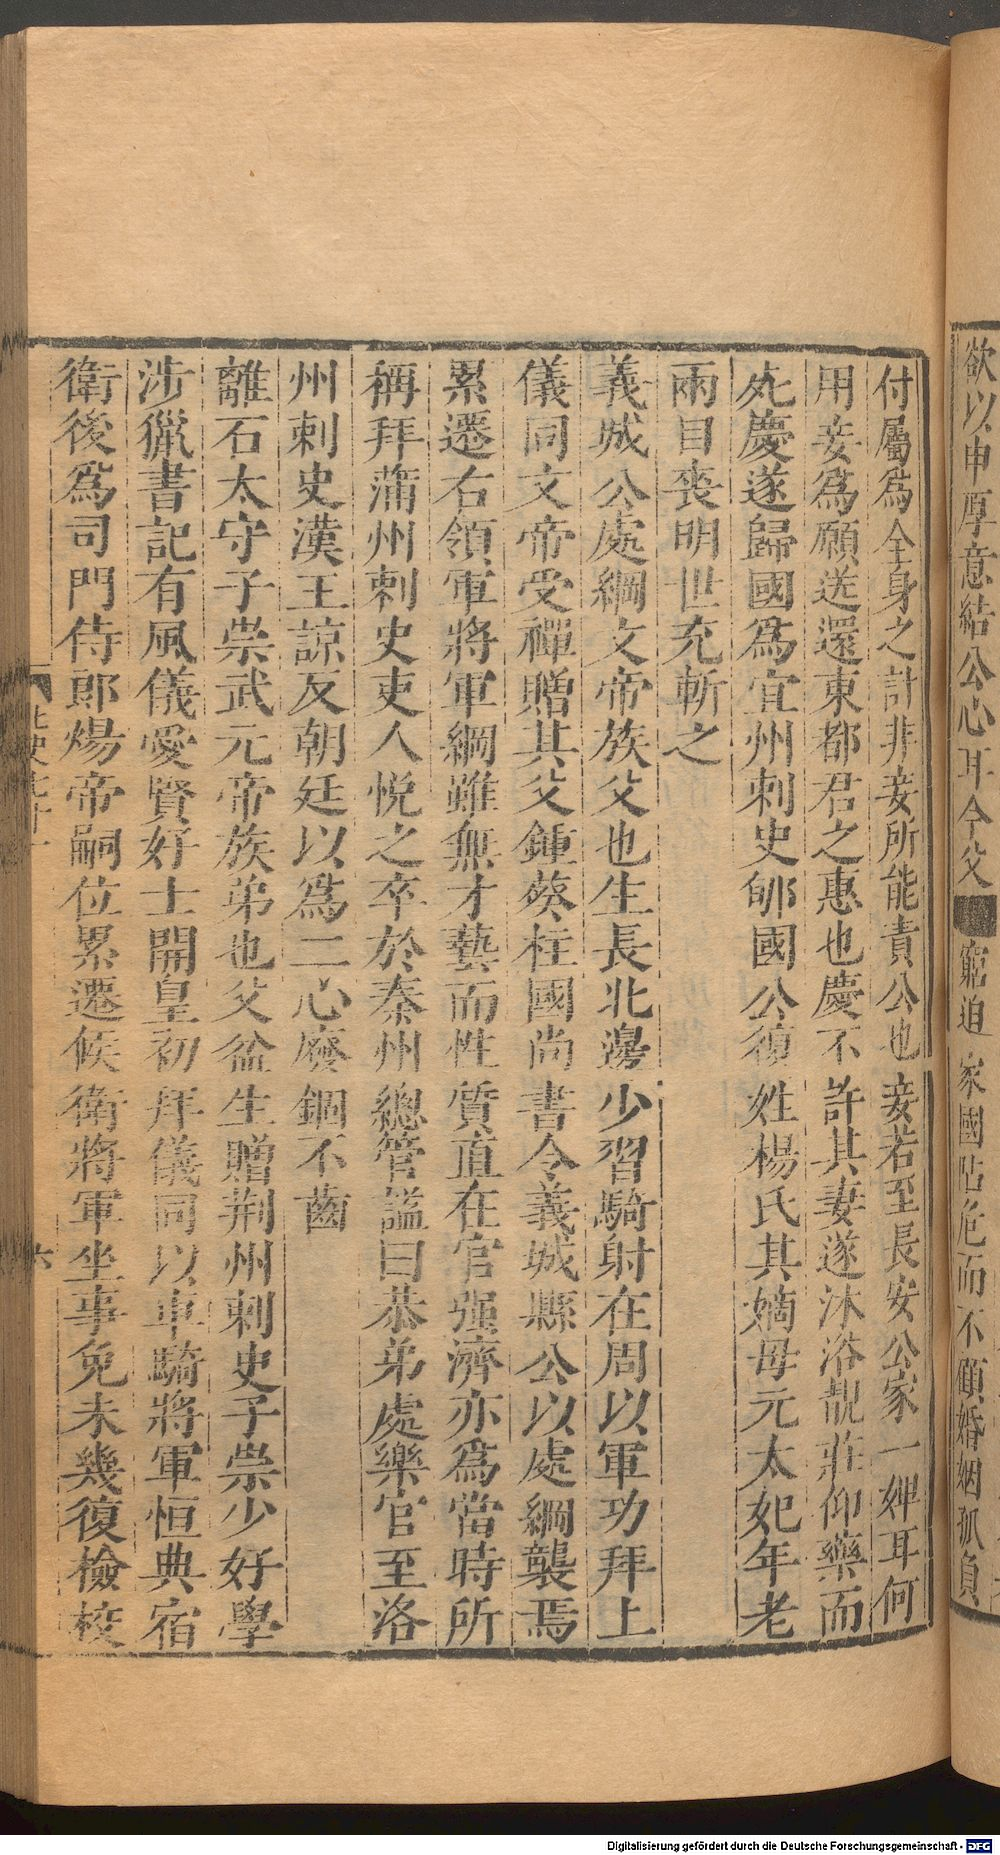 欲以申厚意結公心耳今父窮迫家國阽危而不顧婚姻孤負
付屬爲全身之計非妾所能責公也妾若至長安公家一婢耳何
用妾爲願送還東都君之惠也慶不許其妻遂沐浴靚莊仰藥而
死慶遂歸國爲宜州刺史郇國公復姓楊氏其嫡母元太妃年老
兩目喪明世充斬之
義城公處綱文帝族父也生長北邊少習騎射在周以軍功拜上
儀同文帝受禪贈其父鍾葵柱國尚書令義城縣公以處綱襲焉
累遷右領軍將軍綱雖無才藝而性質直在官强濟亦爲當時所
稱拜蒲州刺史吏人悅之卒於秦州總管謚曰恭弟處樂官至洛
州刺史漢王諒反朝廷以爲二心廢錮不齒
離石太守子崇武元帝族弟也父盆生贈荆州刺史子崇少好學
涉獵書記有風儀愛賢好士開皇初拜儀同以車騎將軍恒典宿
衛後爲司門侍郎煬帝嗣位累遷候衛將軍坐事免未幾復檢校
北史七十一
六
Digitalisierung gefördert durch die Deutsche Forschungsgemeinschaft - DFG